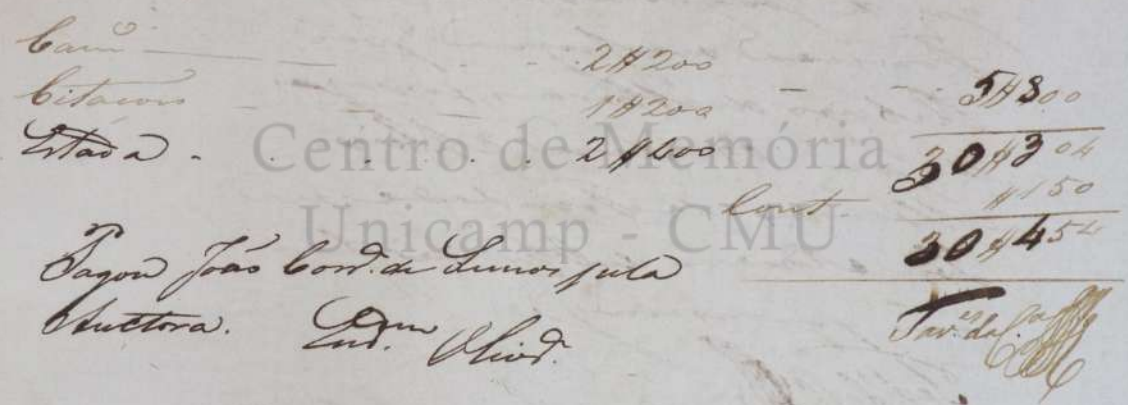 Camº - - - 2#200
Citacoens - - - 1#200 - - 5#800
Estada . . . . . . 2#400 30#304
Cont. #150
30#454
Pagou João Cord. de Lemos pela
Auctora.
Tav.es da C.a
Centro de Memória
Unicamp - CMU